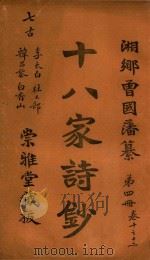 湘鄉曾國藩纂
第四冊 卷十至十二
十八家詩鈔
七古
李太白 杜工部
韓昌黎 白香山
崇雅堂藏板